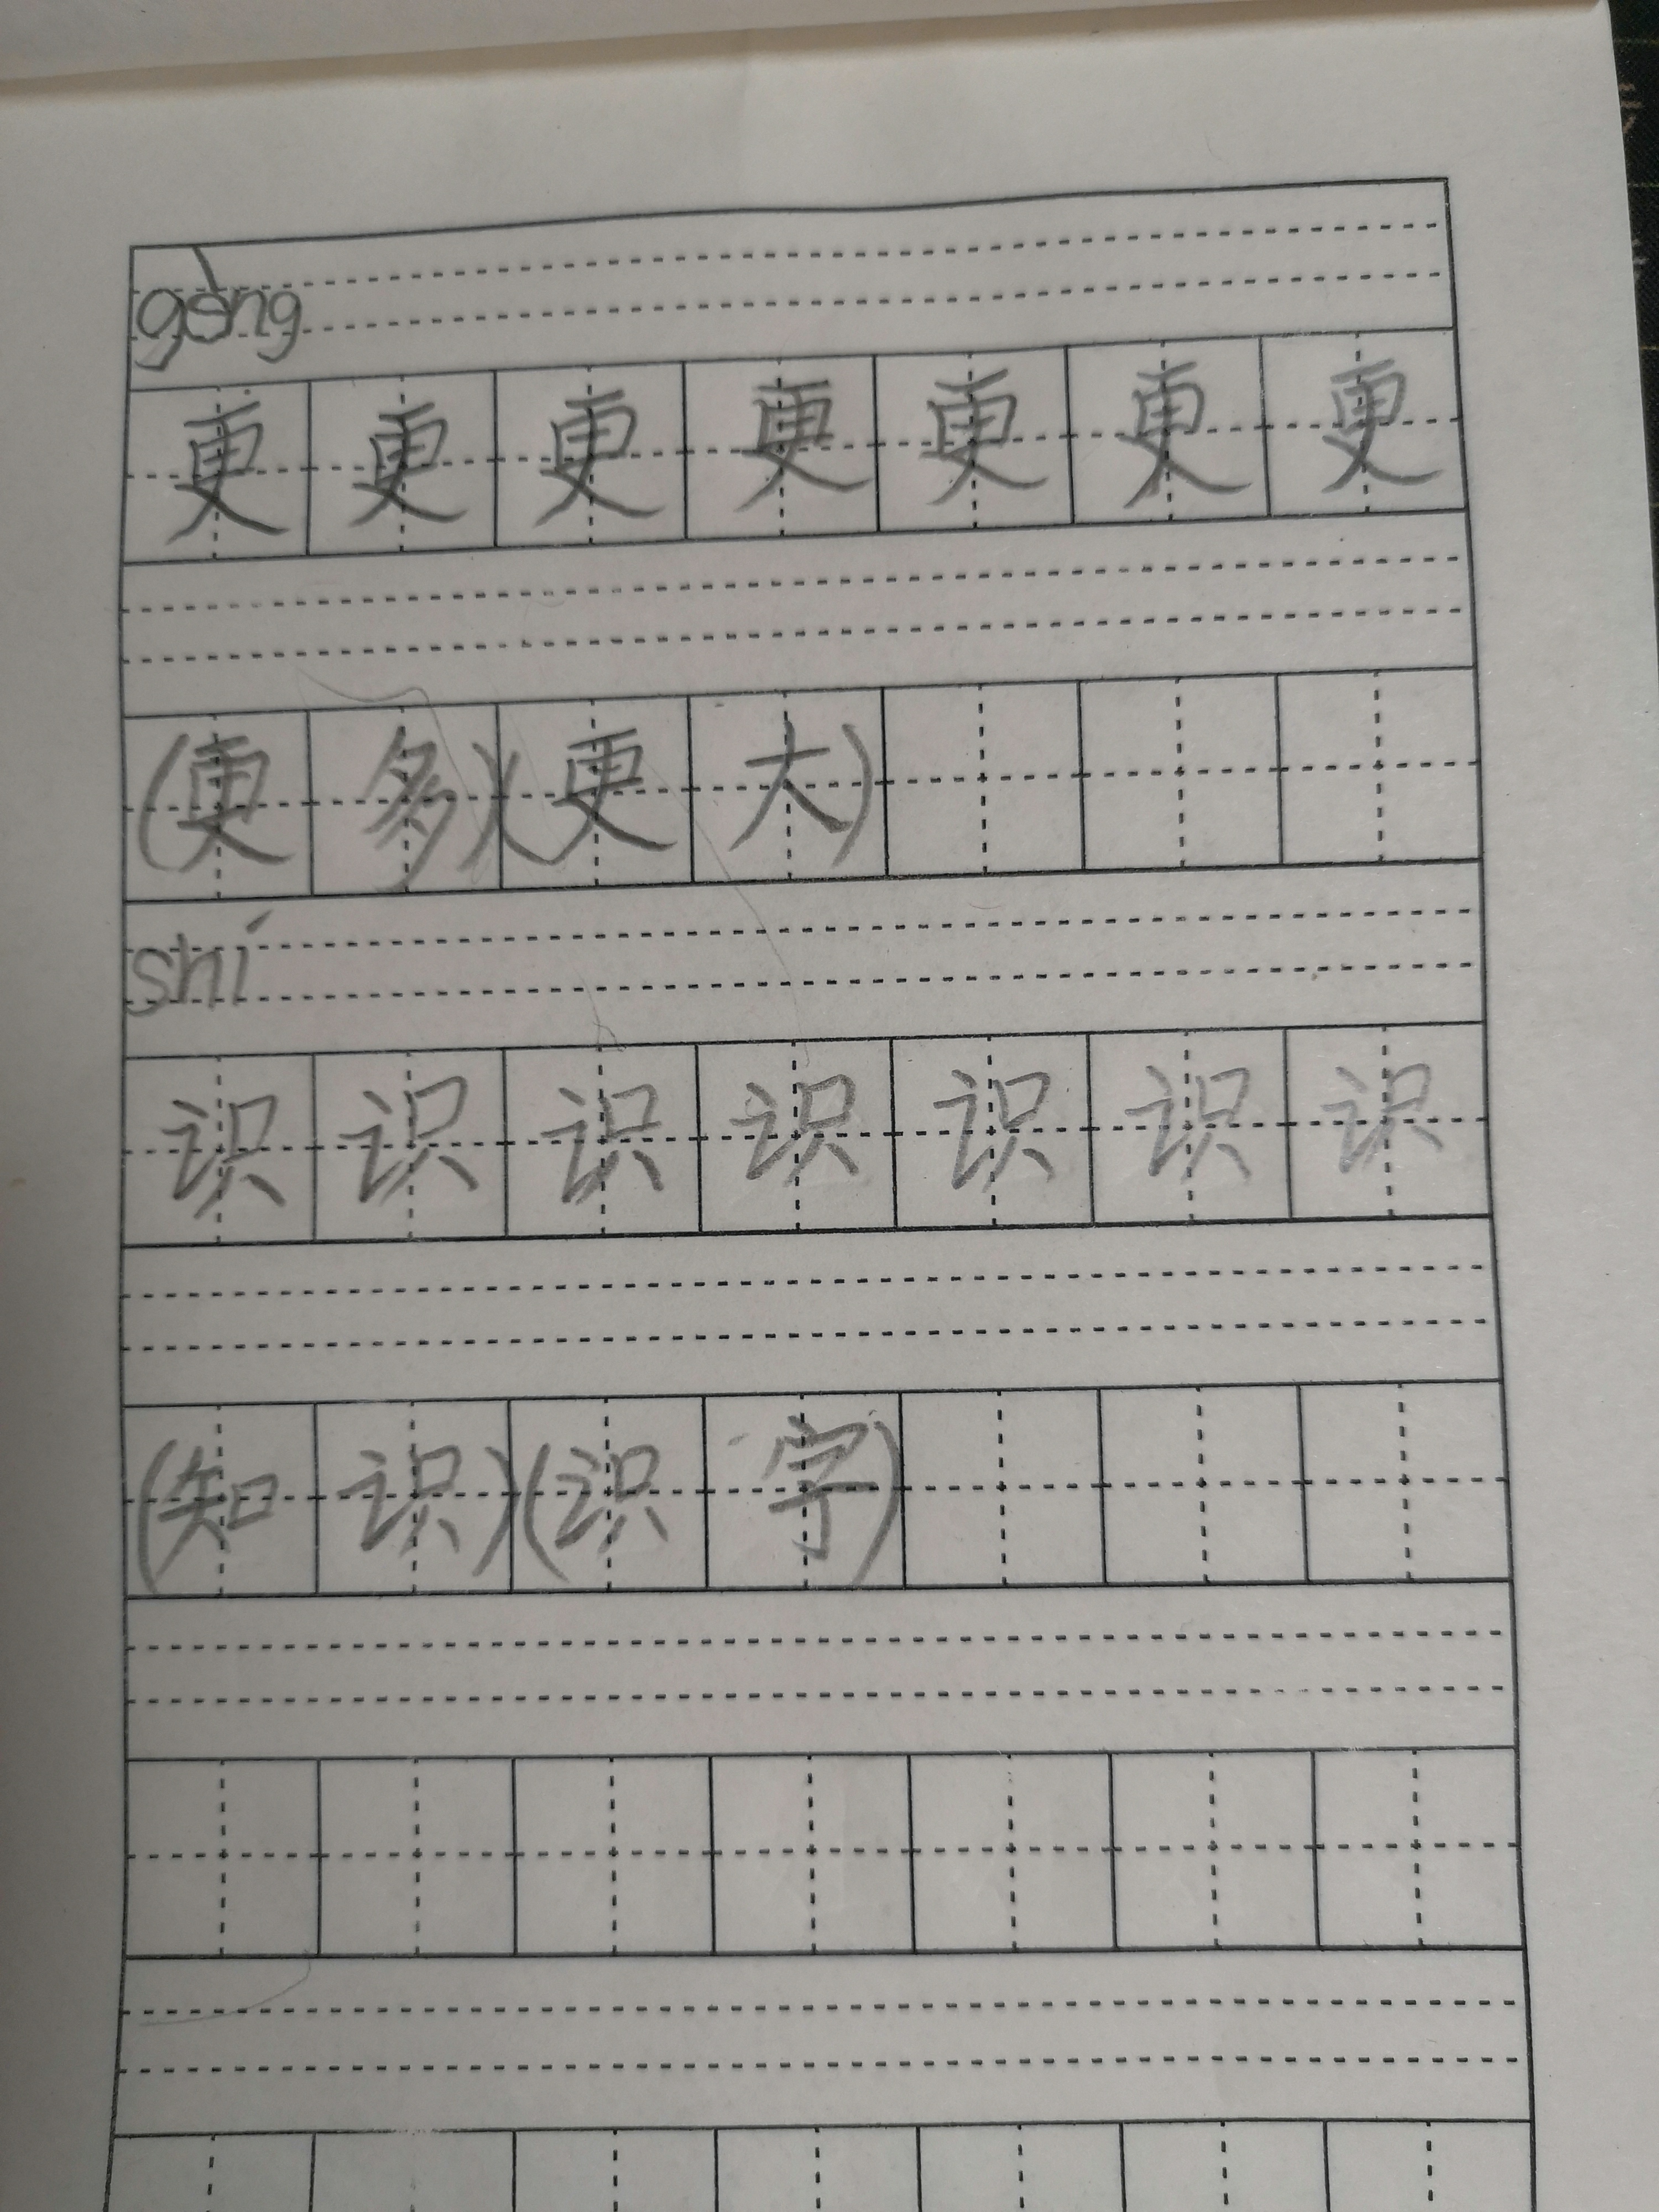 gèng
更更更更更更更
(更多)(更大)
shí
识识识识识识识
(知识)(识字)